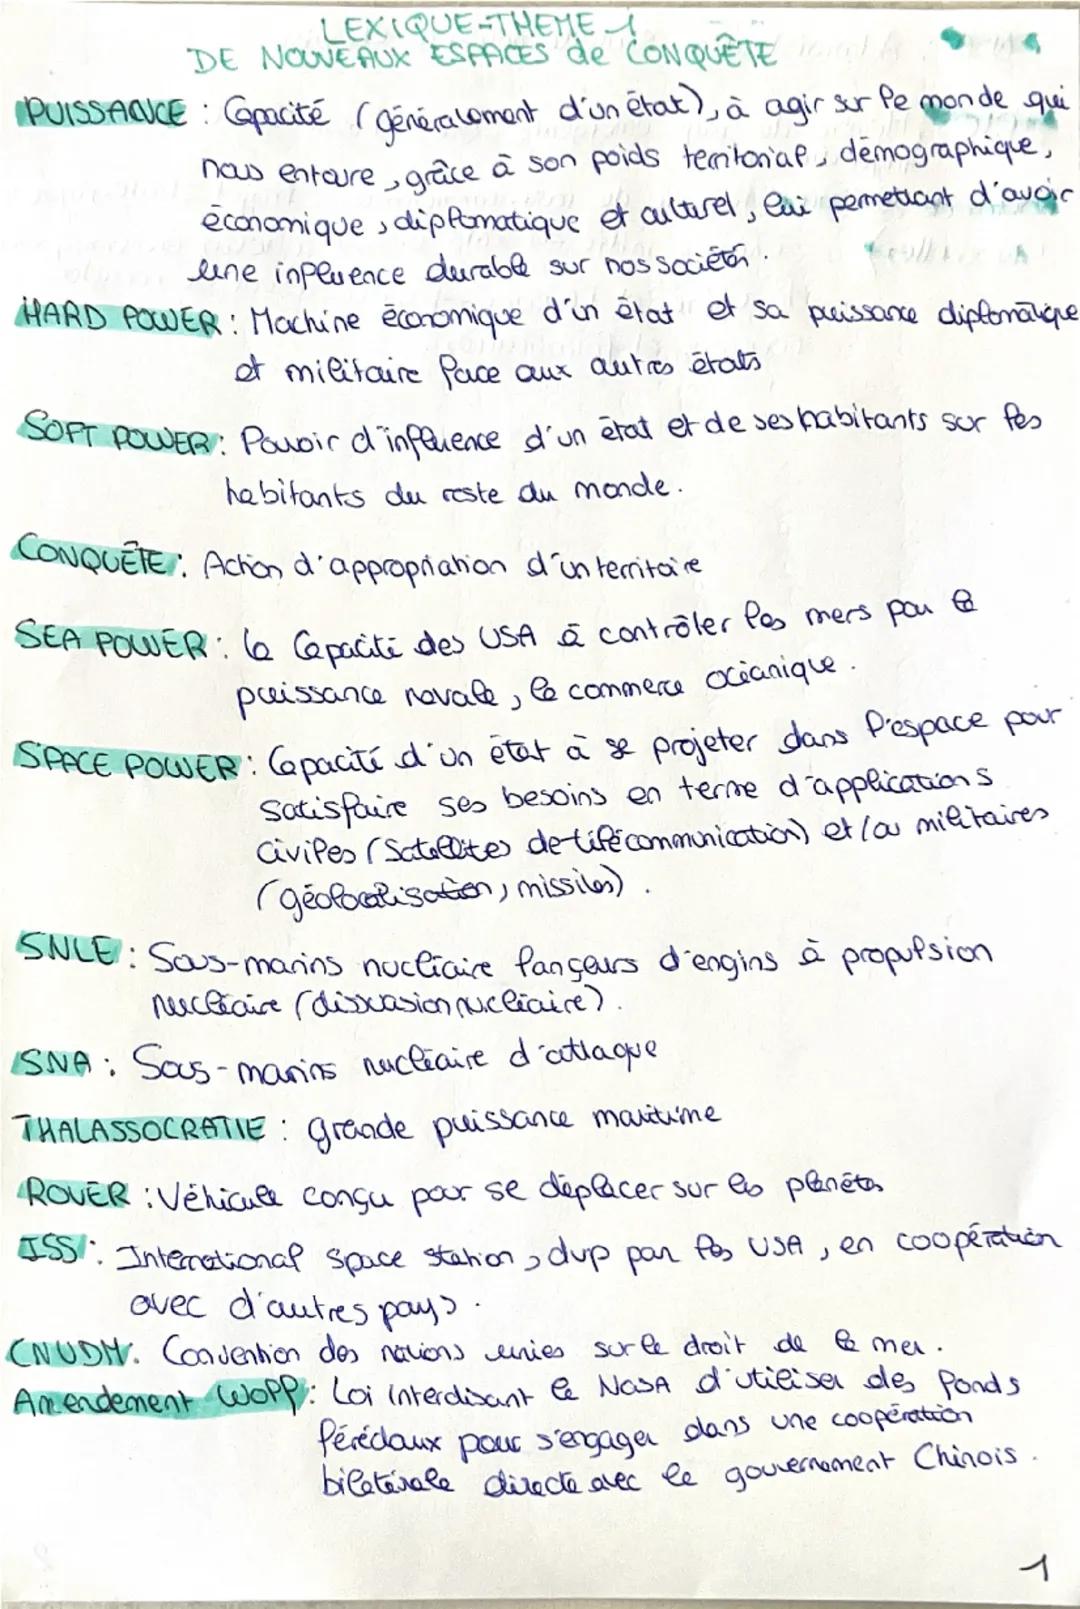 LEXIQUE-THEME 1
DE NOUVEAUX ESPACES de CONQUÊTE
PUISSANCE : Capacité (généralement d'un état), à agir sur le monde qui
nous entoure, grâce à son poids territorial, démographique,
économique, diplomatique et culturel, lui permettant d'avoir
une influence durable sur nos sociétés.
HARD POWER : Machine économique d'un état et sa puissance diplomatique
et militaire face aux autres états
SOFT POWER : Pouvoir d'influence d'un état et de ses habitants sur les
habitants du reste du monde.
CONQUÊTE : Action d'appropriation d'un territoire
SEA POWER : la Capacité des USA à contrôler les mers par la
puissance navale, le commerce océanique.
SPACE POWER : Capacité d'un état à se projeter dans l'espace pour
satisfaire ses besoins en terme d'applications
civiles (Satellites de télécommunication) et/ou militaires
(géolocalisation, missiles).
SNLE : Sous-marins nucléaire lançeurs d'engins à propulsion
nucléaire (dissuasion nucléaire).
SNA : Sous-marins nucléaire d'attaque
THALASSOCRATIE : grande puissance maritime
ROVER : Véhicule conçu pour se déplacer sur les planètes
ISS : International space station, dvp par les USA, en coopération
avec d'autres pays.
CNUDM. Convention des nations unies sur le droit de la mer.
Amendement WOPP : Loi interdisant la NASA d'utiliser des fonds
férédaux pour s'engager dans une coopération
bilatérale directe avec le gouvernement Chinois.
1